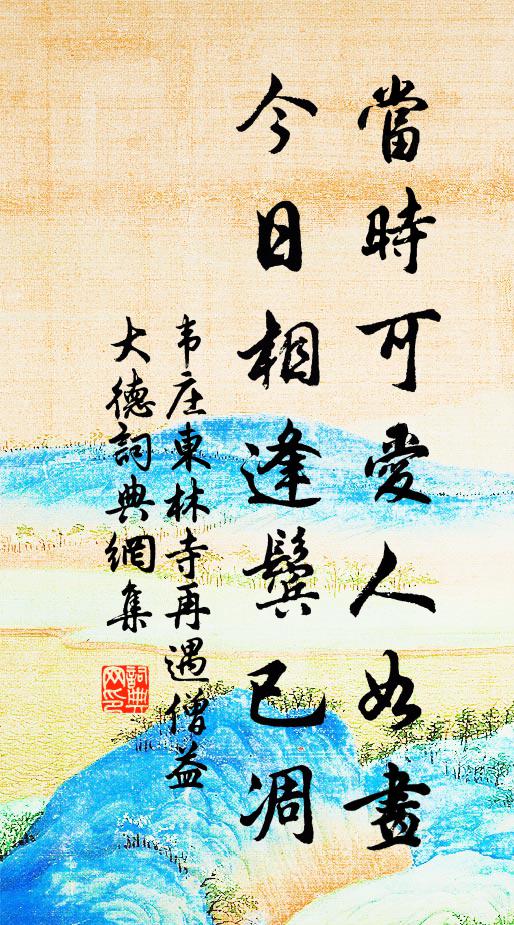 當時可愛人如畫
今日相逢鬢已凋
韦庄東林寺再遇僧益
大德詞典網集
詞典
网印